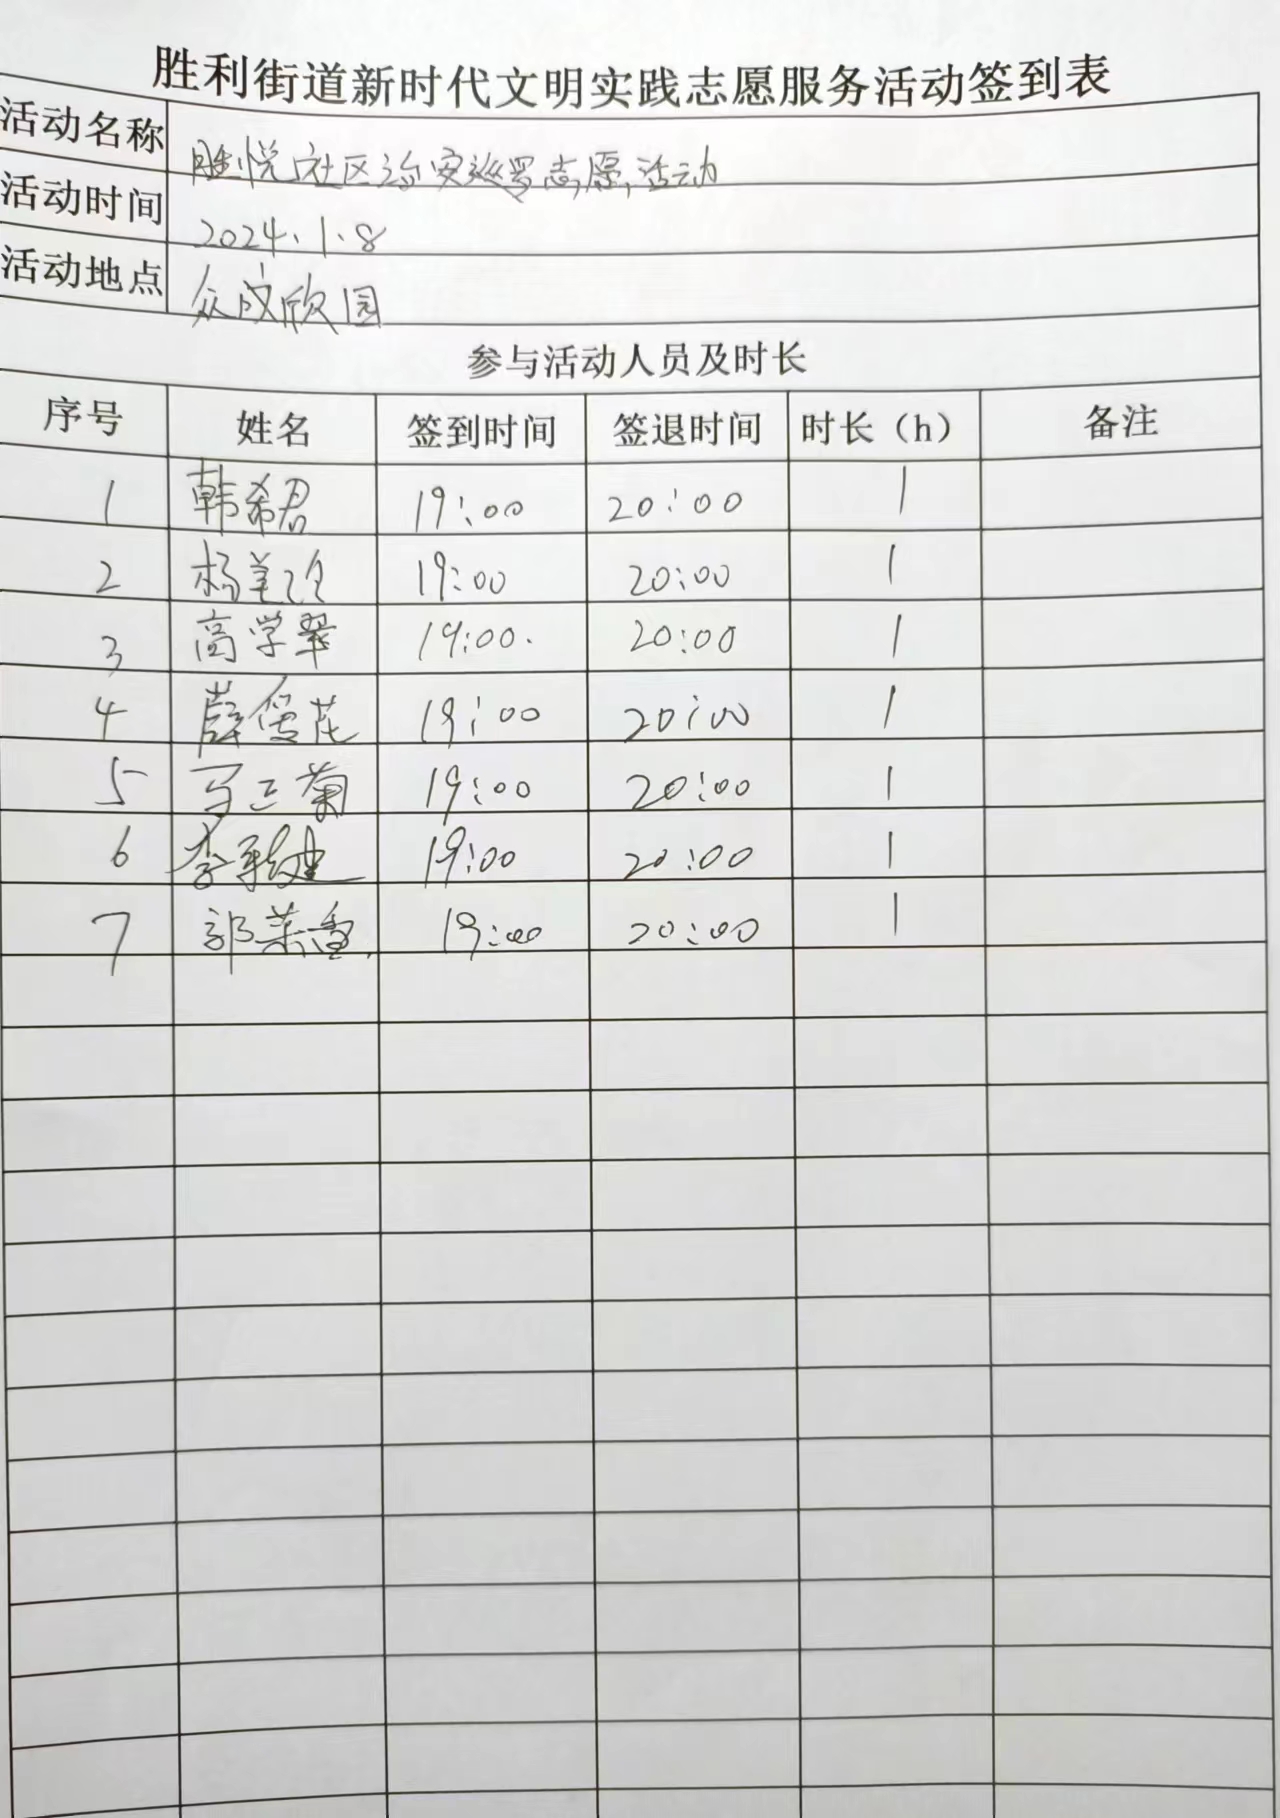 胜利街道新时代文明实践志愿服务活动签到表
活动名称 胜悦社区治安巡逻志愿活动
活动时间 2024.1.8
活动地点 众成欣园
参与活动人员及时长
序号 姓名 签到时间 签退时间 时长（h） 备注
1 韩希君 19:00 20:00 1
2 杨美玲 19:00 20:00 1
3 高学翠 19:00. 20:00 1
4 薛雪花 19:00 20:00 1
5 菊 19:00 20:00 1
6 李 建 19:00 20:00 1
7 郭 香 19:00 20:00 1